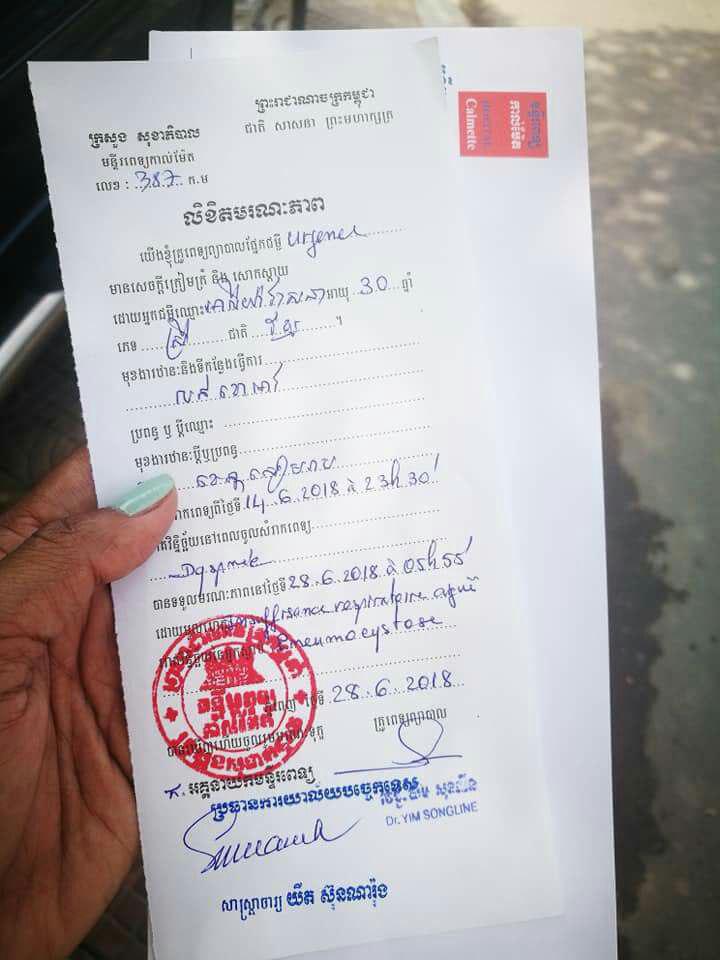 ព្រះរាជាណាចក្រកម្ពុជា
ជាតិ សាសនា ព្រះមហាក្សត្រ
ក្រសួង សុខាភិបាល
មន្ទីរពេទ្យកាល់ម៉ែត
លេខ : 387 ក.ម
មន្ទីរពេទ្យ
កាល់ម៉ែត
HOPITAL
Calmette
លិខិតមរណៈភាព
យើងខ្ញុំគ្រូពេទ្យព្យាបាលផ្នែកជម្ងឺ Urgence
មានសេចក្តីក្រៀមក្រំ និង សោកស្តាយ
ដោយអ្នកជម្ងឺឈ្មោះ អាយុ 30 ឆ្នាំ
ភេទ ស្រី ជាតិ ខ្មែរ ។
មុខងារឋានៈនិងទីកន្លែងធ្វើការ
លក់ខោអាវ
ប្រពន្ធ ឬ ប្តីឈ្មោះ
មុខងារឋានៈប្តីឬប្រពន្ធ
ខេត្តសៀមរាប
រាកពេទ្យពីថ្ងៃទី 14.6.2018 à 23h30'
វិនិច្ឆ័យនៅពេលចូលសំរាកពេទ្យ
Dyspnée
បានទទួលមរណៈភាពនៅថ្ងៃទី 28.6.2018 à 05h55
ដោយមូលហេតុ insuffisance respiratoire aiguë
Pneumocystose
ថ្ងៃទី 28.6.2018
គ្រូពេទ្យព្យាបាល
មន្ទីរពេទ្យ
កាល់ម៉ែត
អគ្គនាយកមន្ទីរពេទ្យ
ប្រធានការិយាល័យបច្ចេកទេស
Dr. YIM SONGLINE
សាស្ត្រាចារ្យ យឹត ស៊ុនណារ៉ុង